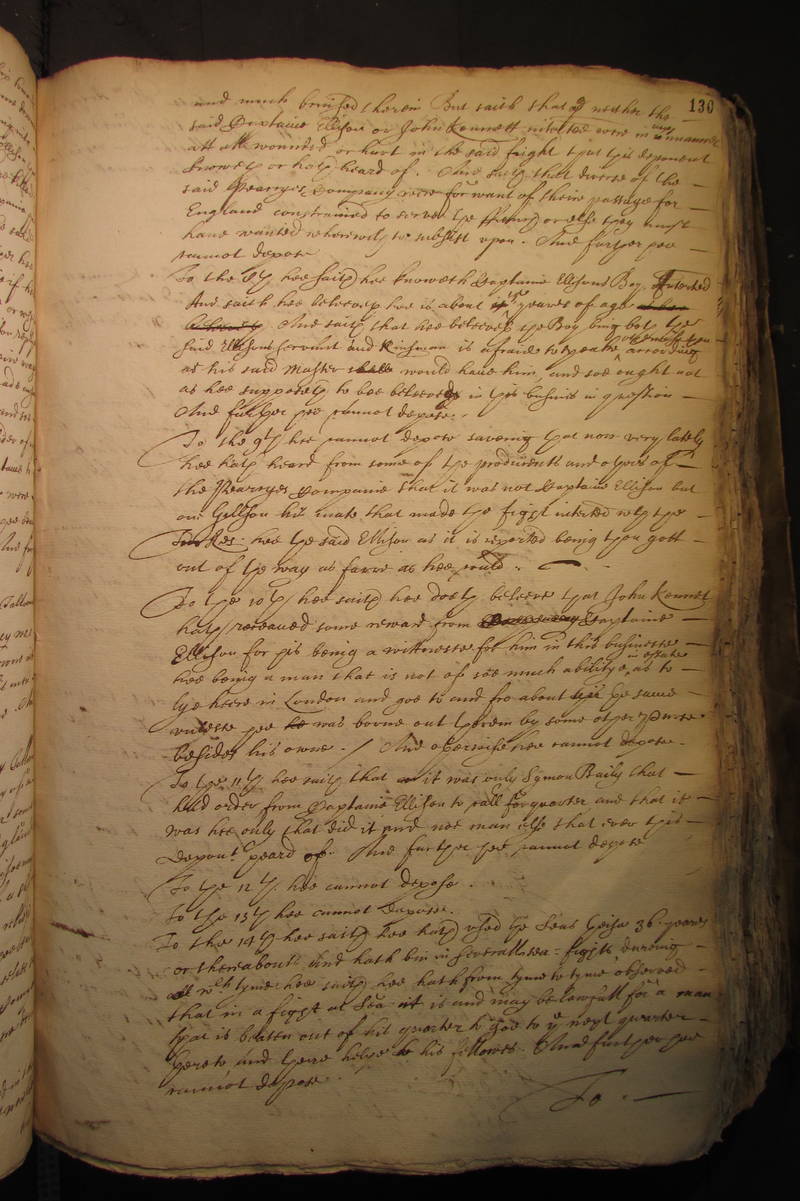 130
and much bruised therein But saith that neither the
said Captaine Ellison or John Kennett interrate were in any manner
att all wounded or hurt in the said fright that this deponent
knoweth or hath heard of. And saith that diverse of the
said Pearyes Company were for want of theire passage for
England constrained to serve the or else they must
have wanted wherewith to subsist upon. And further hee
cannot depose
To the 8th hee saith hee knoweth Captaine Ellisons Boy Interrated
And saith hee beleeveth hee is about yeares of age
And saith that hee beleeveth the Boy being both the
said Ellisons servant and kinsman is afraide to speake according
as his said Master would have him, and soe ought not
as hee supposeth to bee beleeved in this busines in question
And further hee cannot depose.
To the 9th hee cannot depose saveing that now very lately
hee hath heard from some of the producents and others of
the Pearyes Companie that it was not Captaine Ellison but
one Gellson his mate that made the fight interrated with the
hee the said Ellison as it is reported being then gott
out of the way as farre as hee could.
To the 10th hee saith hee doeth beleeve that John Kennet
hath receaued some reward from Captaine
Ellison for his being a wittnesse for him in this businesse
hee being a man that is not of soe much abilitye in estate as to
lye heere in London and goe to and fro about the same
unlesse hee was borne out therein by some other purse
besides his owne. / And otherwise hee cannot depose.
To the 11th hee saith that it was only Symon Baily that
had order from Captaine Ellison to call for quarter and that it
was hee only that did it and noe man else that ever this
Deponent heard of. And further hee cannot depose
To the 12th hee cannot depose.
To the 13th hee cannot depose.
To the 14th hee saith hee hath used the Seas theise 36. yeares
or thereabouts And hath bin in severall sea-fights dureing
all which tyme hee saith hee hath from tyme to tyme observed
that in a fight at Sea it is and may be lawfull for a man
that is beaten out of his quarter to goe to the next quarter
hereto and there helpe his fellowes. And further hee
cannot depose.
To.